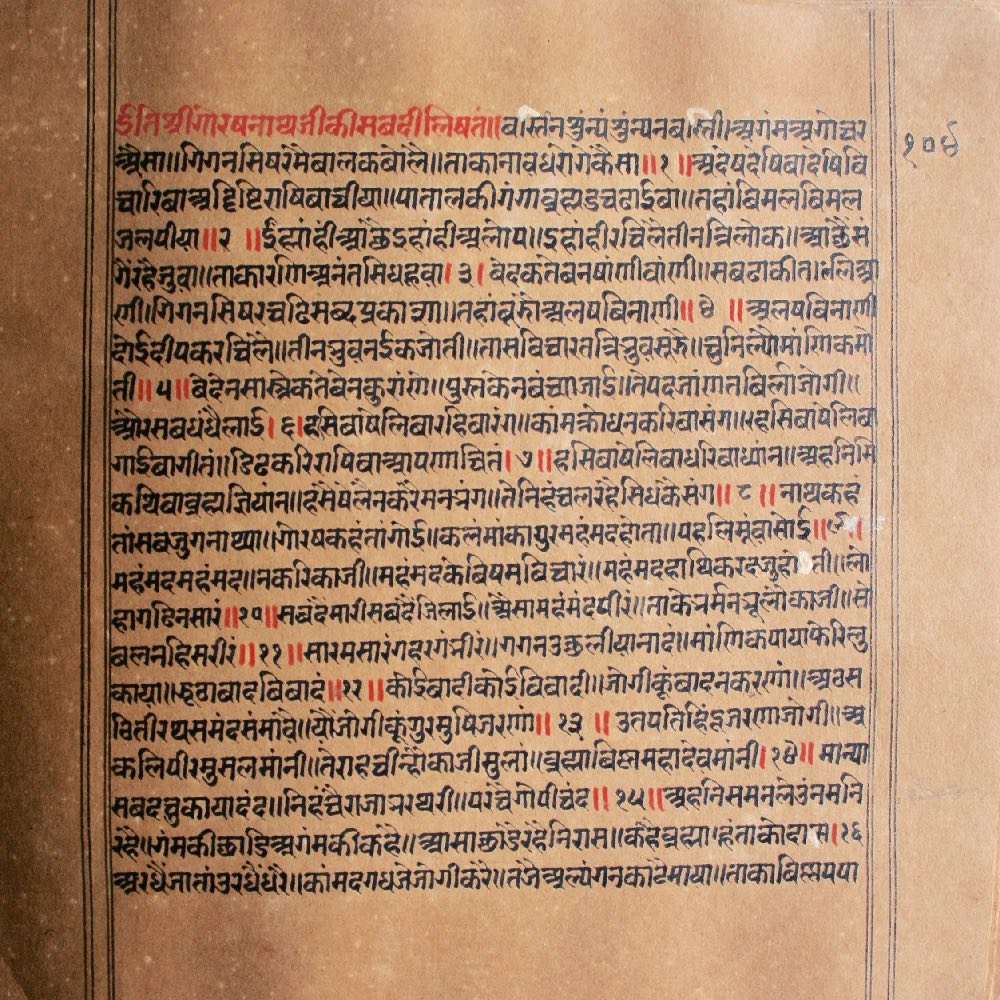 ईतिश्रीगोरषनाथजीकीसबदीलिषतं॥बस्तिनसुंन्यंसुंन्यनबस्ती॥अगंमअगोचर
१०४
अैसा॥गिगनसिषरमैबालकबोलै॥ताकानावधरौगेकैसा॥१॥अदेषदेषिबादेषिबि
चारिबाअदिष्टिराषिबाचीया॥पातालकीगंगाब्रह्मंडचढाईबा॥तहांबिमलबिमल
जलपीया॥२॥ईंह्यांहीआछैऽहांहीअलोप॥ऽहांहीरचिलैतीनत्रिलोक॥आछैसं
गैंरहैजुवा॥ताकारणिअनंतसिधहूवा।३।बेदकतेबनषांणीबांणी॥सबढाकीतलिआ
णी॥गिगनसिषरचढिसब्दप्रकाश्या॥तहांबूझौअलषबिनाणी॥४॥अलषबिनाणी
दोईदीपकरचिलै॥तीनभुवनईकजोती॥तासबिचारतत्रिभुवसूझै॥चुनिल्यौमांणिकमो
ती॥५॥बेदेनसास्त्रेकतेबेनकुरांणे॥पुस्तकेनबंच्याजाई॥तेपदजांणातबिर्लाजोगी॥
औरसबधंधैलाई।६।हसिबाषेलिबारहिबारंग॥कांमक्रोधनकरिबासंग॥हसिबाषेलिबा
गाईबागीतं॥डिढकरिराषिबाआपणाचितं।७॥हसिबाषेलिबाधरिबाध्यांन॥अहनिसि
कथिबाब्रह्मगियांन॥हंसैषेलैनकरैमनभंग॥तेनिहंचलरहैसिधकैसंग॥८॥नाथकहं
तांसबजुगनाथ्या॥गोरषकहंतांगोई॥कलमांकागुरमहंमदहोता॥पहलिमूंवासोई॥९॥
महंमदमहंमद॥नकरिकाजी॥महंमदकबिषमबिचारं॥महंमदहाथिकरदजुहोती॥लो
हागढिनसारं॥१०॥सबदैमारीसबदैजिलाई॥अैसामहंमदपीरं॥ताकेभर्मनभूलौकाजी॥सो
बलनहिसरीरं॥११॥सारमसारंगहरगंभीरं॥गगनउछलीयानादं॥मांणिकपायाफेरिलु
काया॥झूठाबादबिबादं॥१२॥कोईबादीकोईबिबादी॥जोगीकूंबादनकरणां॥अठस
ठितीरथसमंदसंमांवै॥यौंजोगीकूंगुरमुषिजरणां॥१३॥उतपतिहिंदूजरणाजोगी॥अ
कलिपीरमुसलमांनी॥तेराहचीन्हौकाजीमुलां॥ब्रह्माबिष्नमहादेवमांनी।१४॥मान्या
सबदचुकायादंद॥निहंचैराजाभरथरी॥परचैगोपीचंद॥१५॥अहनिसमनलैउंनमनि
रहै॥गंमकीछाडिअगंमकीकहै॥आसाछांडेरहैनिरास॥कहैब्रह्माहूंताकोदास।१६
अरधैजातांउरधैंधरै॥कांमदगधजेजोगीकरै॥तजैअल्यंगनकाटैमाया॥ताकाबिष्नपषा